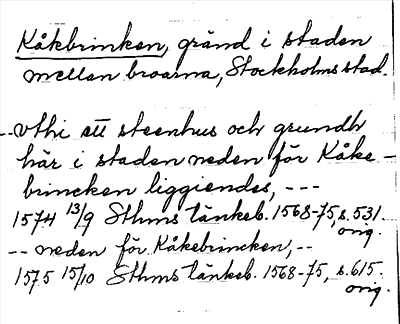 Kåkbrinken, gränd i staden
mellan broarna, Stockholms stad.
-- vthi ett steenhus och grundh
här i staden neden för Kåke-
brincken liggiendes, ---
1574 13/9 Sthms tänkeb. 1568-75, s. 531.
orig.
-- neden för Kåkebrincken, --
1575 15/10 Sthms tänkeb. 1568-75, s. 615.
orig.